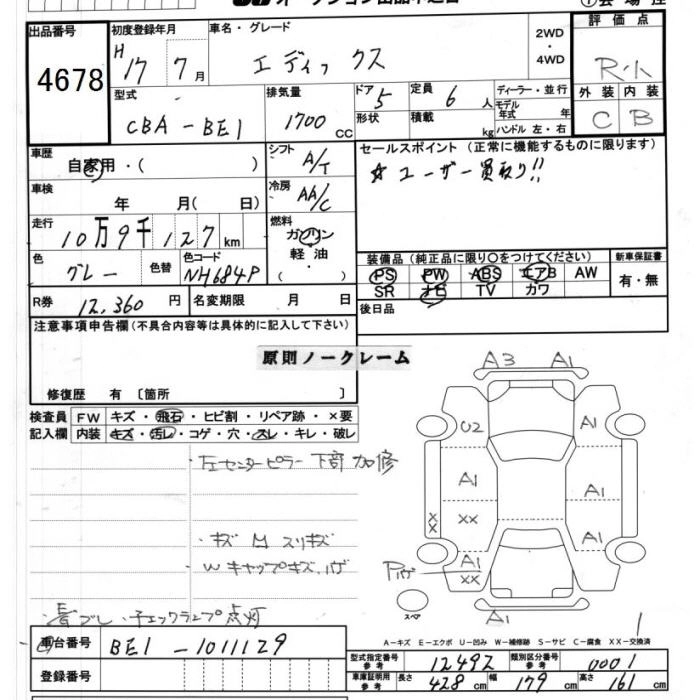 出品番号
4678
初度登録年月
H 17 7月
車名・グレード
エディックス
2WD
・
4WD
評価点
R・ハ
外装 内装
C B
型式
CBA-BE1
排気量
1700 cc
ドア 5
形状
定員 6 人
積載 kg
ディーラー・並行
モデル年式 年
ハンドル 左・右
車歴
自家用・( )
シフト A/T
セールスポイント (正常に機能するものに限ります)
☆ユーザー買取り!!
車検
年 月( 日)
冷房 AA/C
走行
10万9千127km
燃料
ガソリン
軽油
( ・ )
色
グレー
色替
色コード
NH684P
装備品 (純正品に限り○をつけてください)
PS PW ABS エアB AW
SR ナビ TV カワ
新車保証書
有・無
R券 12,360 円
名変期限 月 日
後日品
注意事項申告欄(不具合内容等は具体的に記入して下さい)
原則ノークレーム
修復歴 有 [箇所 ]
検査員 FW キズ・飛石・ヒビ割・リペア跡・×要
記入欄 内装 キズ・汚レ・コゲ・穴・スレ・キレ・破レ
・左センターピラー下部加修
・キズ凹スリキズ
・Wキャップキズ、ハゲ
・チェックランプ点灯
A3 A1
U2 A1
A1 A1
XX XX
A1
Pハゲ A1
XX
スペア
A1
A-キズ E-エクボ U-凹み W-補修跡 S-サビ C-腐食 XX-交換済
車台番号 BE1-1011129
登録番号
型式指定番号 参考 12492
類別区分番号 参考 0001
車庫証明用 参考 長さ 428 cm 幅 179 cm 高さ 161 cm